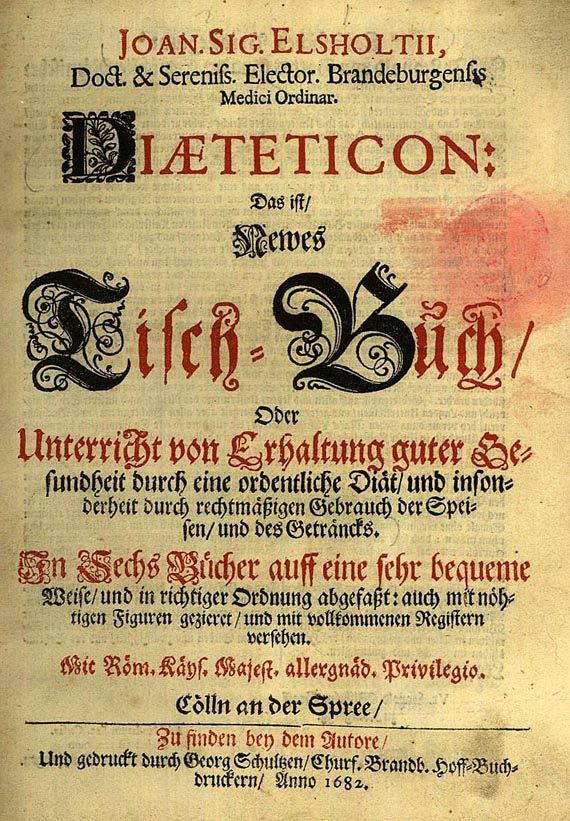 JOAN. SIG. ELSHOLTII,
Doct. & Sereniſs. Elector. Brandeburgenſis
Medici Ordinar.
DIÆTETICON:
Das iſt/
Newes
Tiſch-Buch/
Oder
Unterricht von Erhaltung guter Ge-
ſundheit durch eine ordentliche Diät/ und inſon-
derheit durch rechtmäßigen Gebrauch der Spei-
ſen/ und des Geträncks.
In Sechs Bücher auff eine ſehr bequeme
Weiſe/ und in richtiger Ordnung abgefaßt: auch mit nöh-
tigen Figuren gezieret/ und mit vollkommenen Regiſtern
verſehen.
Mit Röm. Käyſ. Majeſt. allergnäd. Privilegio.
Cölln an der Spree/
Zu finden bey dem Autore/
Und gedruckt durch Georg Schultzen/ Churf. Brandb. Hoff-Buch-
druckern/ Anno 1682.